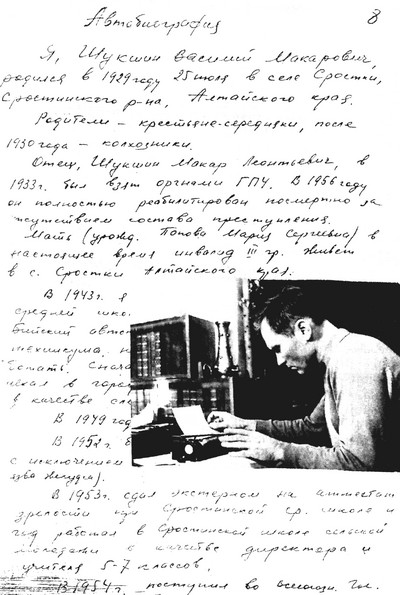 Автобиография
8
Я, Шукшин Василий Макарович,
родился в 1929 году 25 июля в селе Сростки,
Сростинского р-на, Алтайского края.
Родители – крестьяне-середняки, после
1930 года – колхозники.
Отец, Шукшин Макар Леонтьевич, в
1933 г. был взят органами ГПУ. В 1956 году
он полностью реабилитирован посмертно за
отсутствием состава преступления.
Мать (урожд. Попова Мария Сергеевна) в
настоящее время инвалид III гр. Живет
в с. Сростки Алтайского края.
В 1943 г. я
средней шко
бийский авто
техникума, н
ботать. Снача
ехал в горо
в качестве сле
В 1949 год
В 1952 г.
с исключением
язва желудка).
В 1953 г. сдал экстерном на аттестат
зрелости при Сростинской ср. школе и
год работал в Сростинской школе сельской
молодежи в качестве директора и
учителя 5-7 классов.
В 1954 поступил во Всесоюз. Гос.